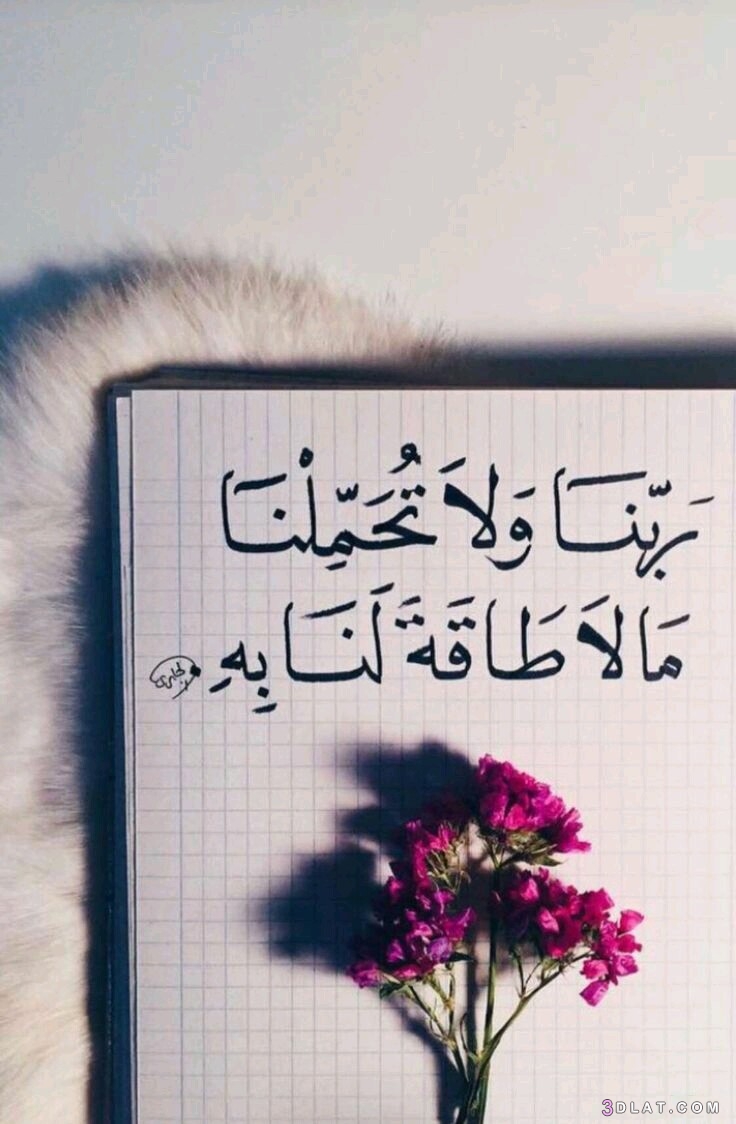 رَبَّنَا وَلَا تُحَمِّلْنَا
مَا لَا طَاقَةَ لَنَا بِهِ
3DLAT.COM